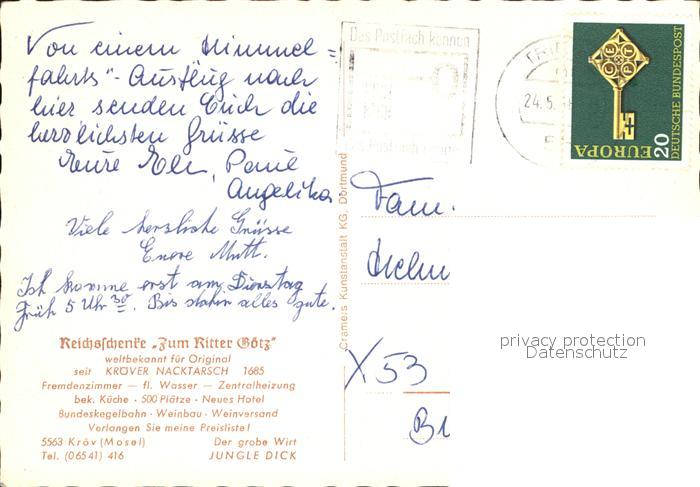 Von einem Himmel=
fahrts"-Ausflug nach
hier senden Euch die
herzlichsten Grüsse
Eure Elli, Paul
Angelika
Viele herzliche Grüsse
Euere Mutt.
Ich komme erst am Dienstag
früh 5 Uhr 30. Bis dahin alles gute.
Reichsschenke „Zum Ritter Götz"
weltbekannt für Original
seit KRÖVER NACKTARSCH 1685
Fremdenzimmer — fl. Wasser — Zentralheizung
bek. Küche · 500 Plätze · Neues Hotel
Bundeskegelbahn · Weinbau · Weinversand
Verlangen Sie meine Preisliste!
5563 Kröv (Mosel) Der grobe Wirt
Tel. (06541) 416 JUNGLE DICK
Cramers Kunstanstalt KG. Dortmund
Das Postfach kennen
24.5.
CEPT
EUROPA
20
DEUTSCHE BUNDESPOST
Fam.
X 53
privacy protection
Datenschutz